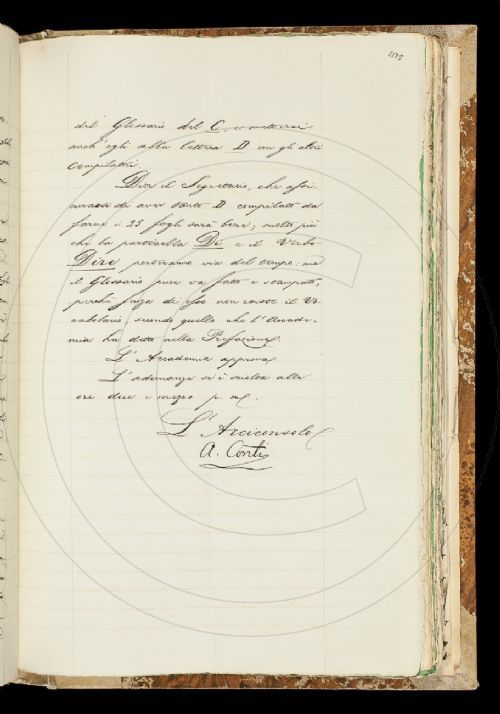 1175
del Glossario del C, e mettersi
anch'egli alla lettera D con gli altri
Compilatori.
Dice il Segretario, che assi-
curarsi di aver tanto D compilato da
farne i 25 fogli sarà bene; molto più
che la particella Di e il Verbo
Dire porteranno via del tempo: ma
il Glossario pure va fatto e stampato,
perchè senza di esso non esiste il Vo-
cabolario, secondo quello che l'Accade-
mia ha detto nella Prefazione.
L'Accademia approva.
L'adunanza si è sciolta alle
ore due e mezzo p. m.
L'Arciconsolo
A. Conti